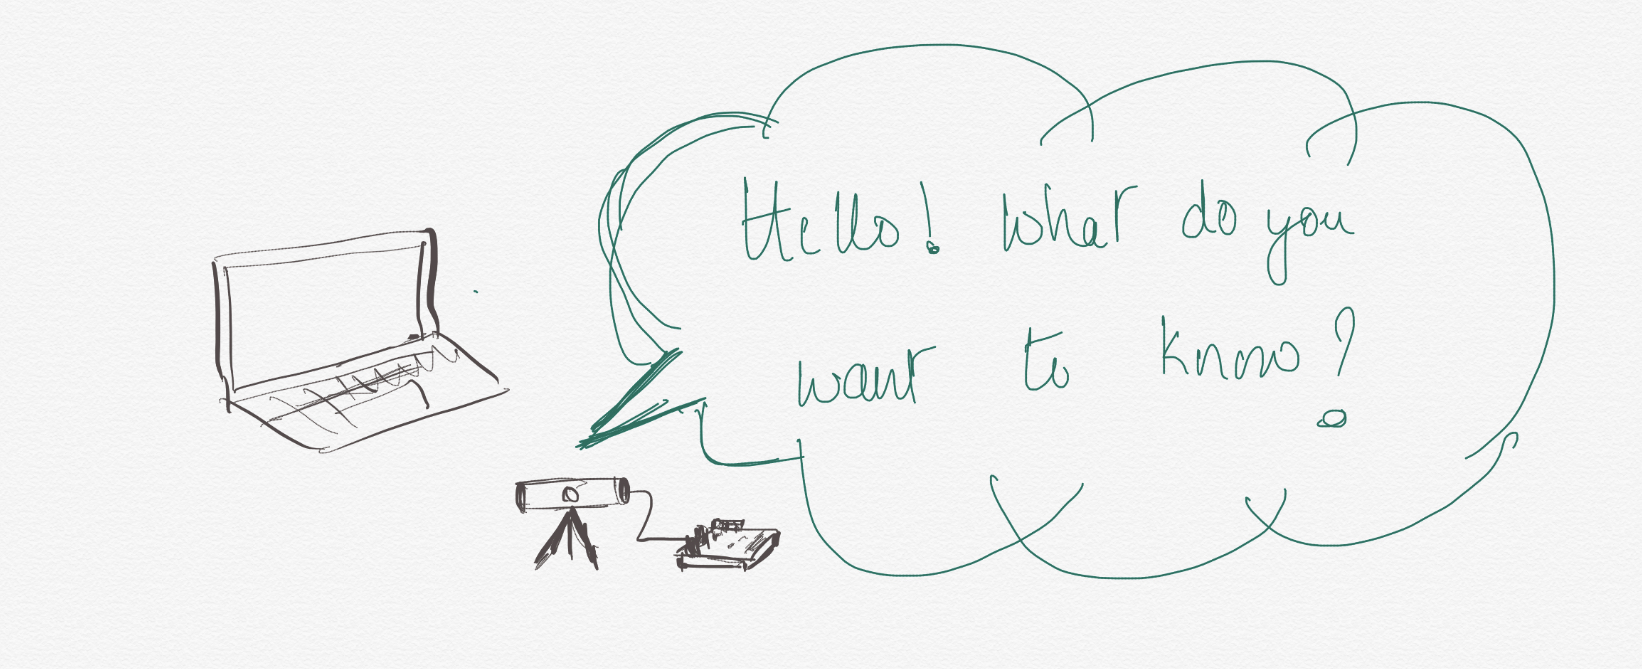 Hello! What do you
want to know?